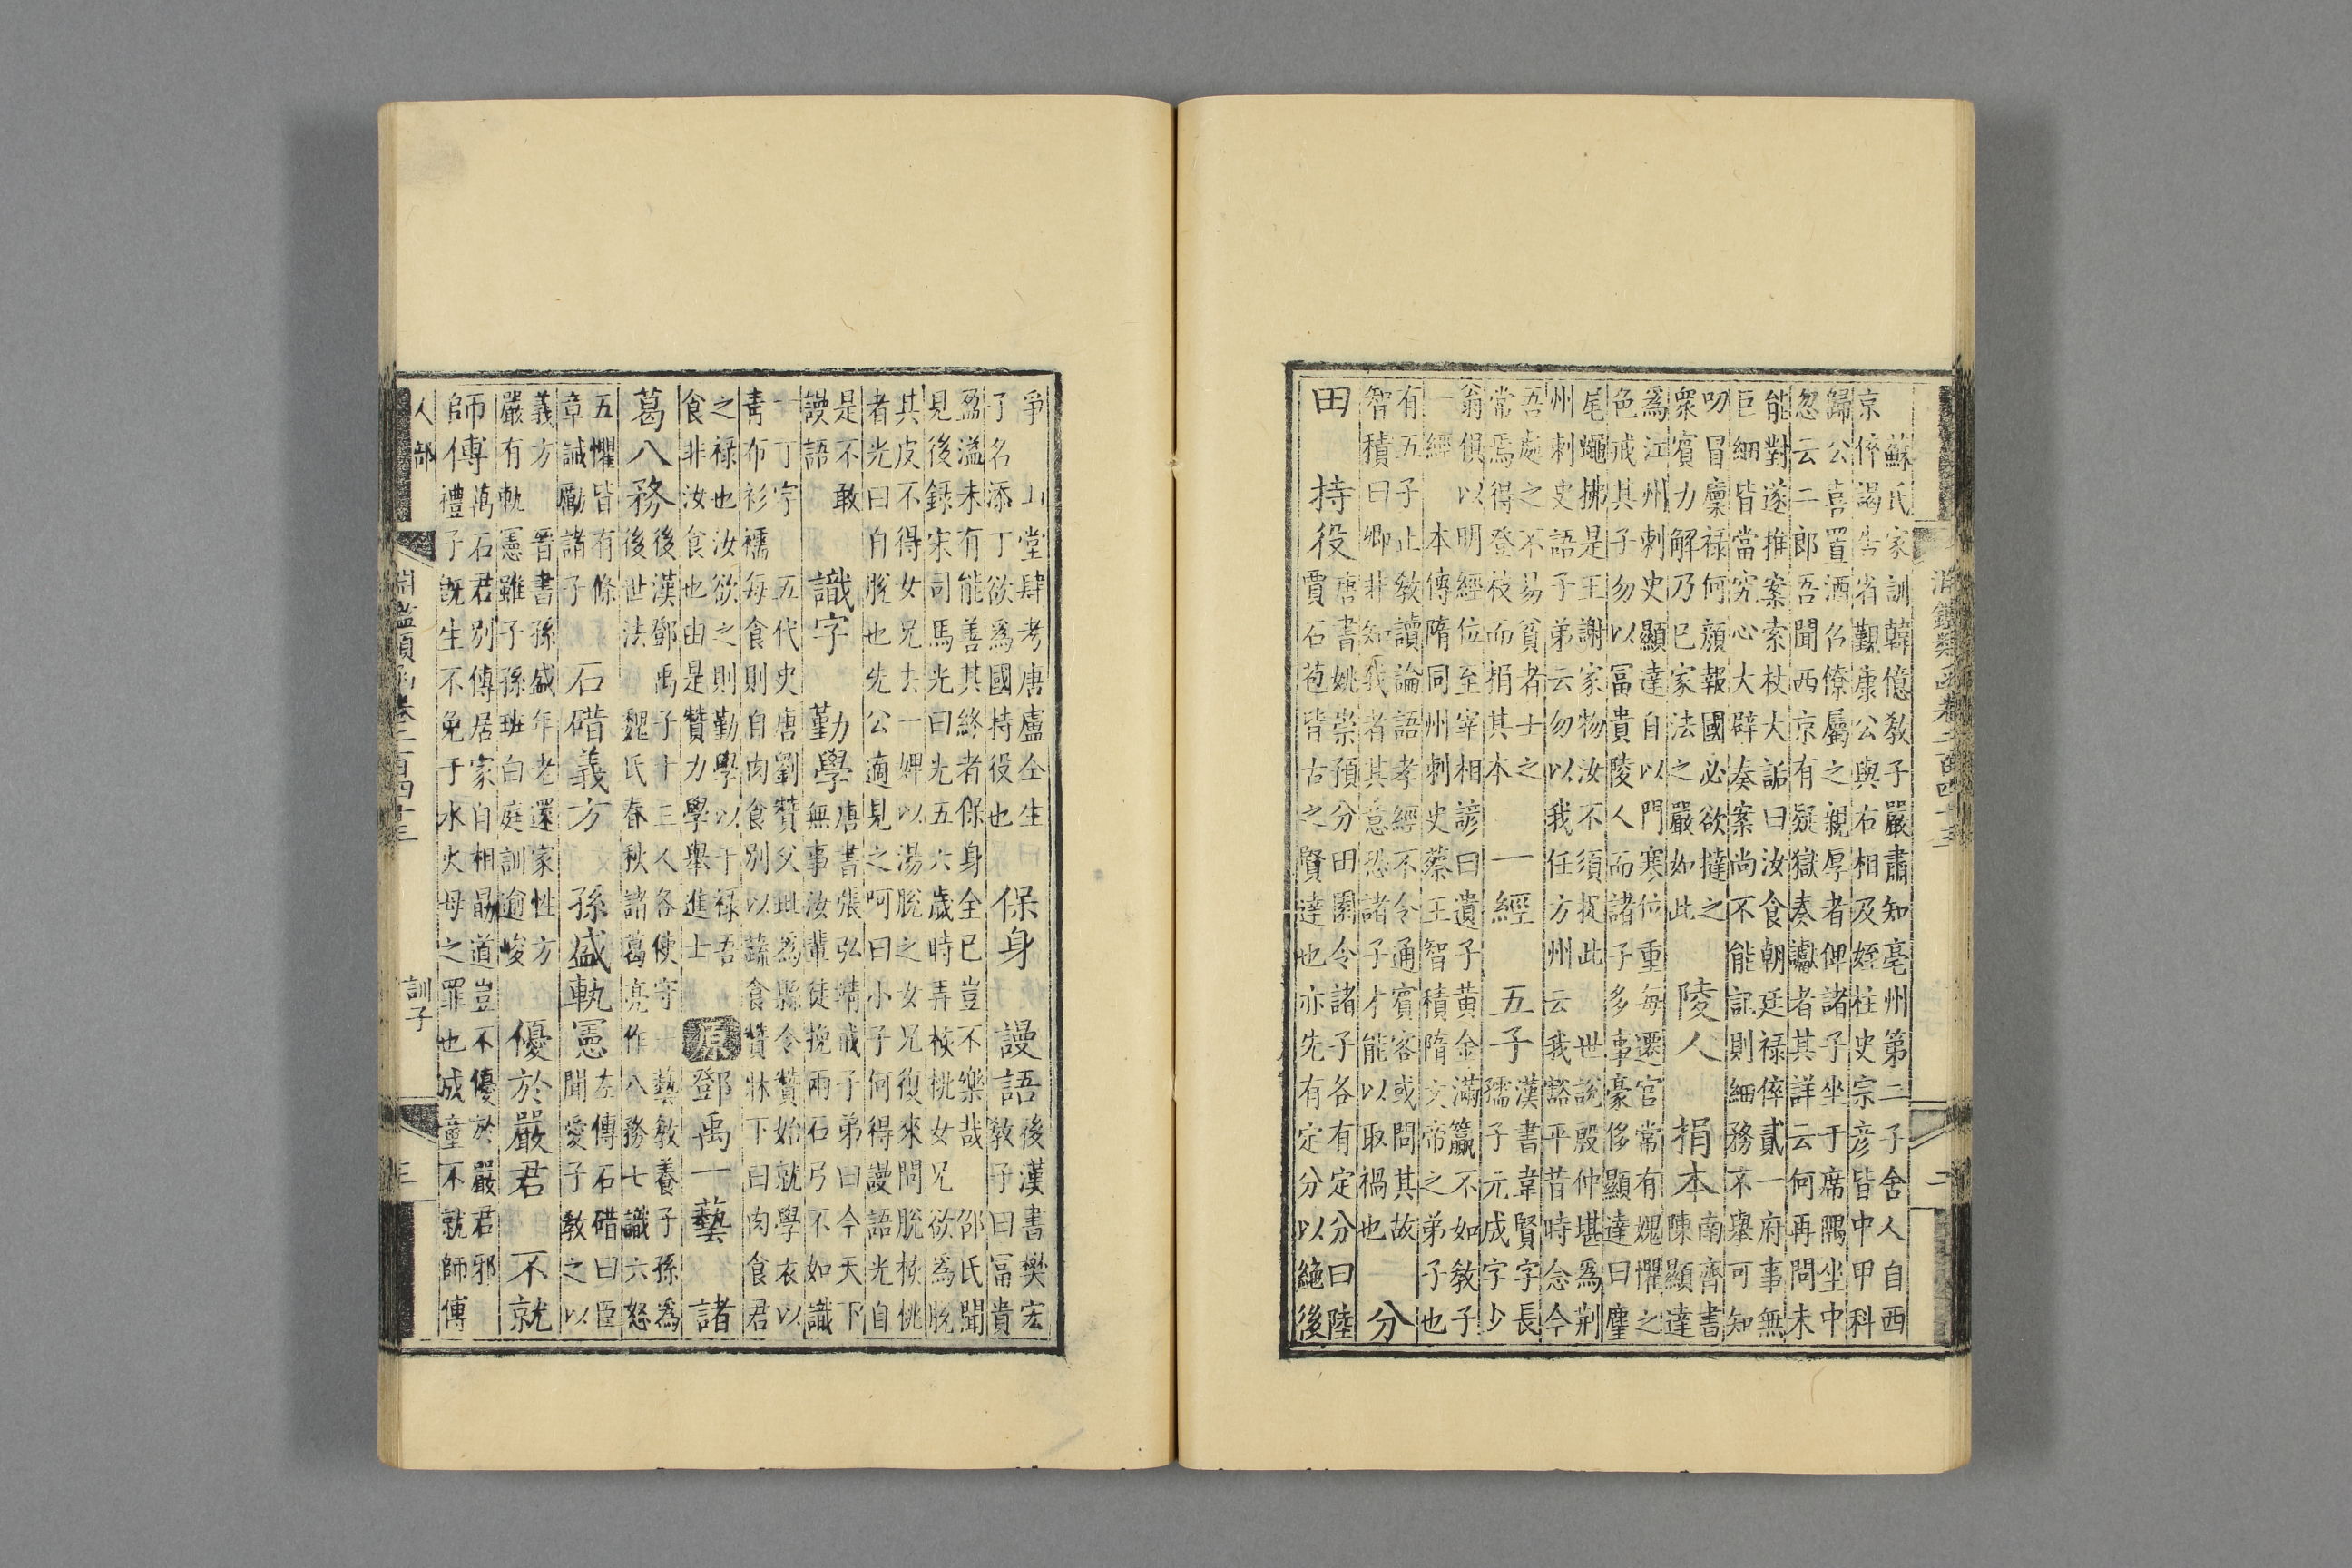 淵鑑類函卷二百四十三 二
蘇氏家訓韓億敎子嚴肅知亳州第二子舍人自西
京倅謁告省覲康公與右相及姪柱史宗彥皆中甲科
歸公喜置酒召僚屬之親厚者俾諸子坐于席隅坐中
忽云二郎吾聞西京有疑獄奏讞者其詳云何再問未
能對遂推案索杖大詬曰汝食朝廷祿倅貳一府事無
巨細皆當究心大辟奏案尚不能記則細務不舉可知
叨冒廩祿何顏報國必欲撻之
衆賓力解乃已家法之嚴如此
陵人 捐本
南齊書
陳顯達
爲江州刺史顯達自以門寒位重每遷官常有愧懼之
色戒其子勿以富貴陵人而諸子多事豪侈顯達曰麈
尾蠅拂是王謝家物汝不須捉此 世說殷仲堪爲荊
州刺史語子弟云勿以我任方州云我豁平昔時念今
吾處之不易貧者士之
常焉得登枝而捐其本
一經 五子
漢書韋賢字長
孺子元成字少
翁俱以明經位至宰相諺曰遺子黃金滿籯不如敎子
一經 本傳隋同州刺史蔡王智積隋文帝之弟子也
有五子止敎讀論語孝經不令通賓客或問其故
智積曰卿非知我者其意恐諸子才能以取禍也
分
田 持役
唐書姚崇預分田園令諸子各有定分曰陸
賈石苞皆古之賢達也亦先有定分以絶後
爭 山堂肆考唐盧仝生
子名添丁欲爲國持役也
保身 謾語
後漢書樊宏
敎子曰富貴
盈溢未有能善其終者保身全已豈不樂哉 邵氏聞
見後錄宋司馬光曰光五六歲時弄核桃女兄欲爲脫
其皮不得女兄去一婢以湯脫之女兄復來問脫核桃
者光曰自脫也先公適見之呵曰小子何得謾語光自
是不敢
謾語
識字 勤學
唐書張弘靖戒子弟曰今天下
無事汝輩徒挽兩石弓不如識
一丁字 五代史唐劉贊父玭爲縣令贊始就學衣以
青布衫襦每食則自肉食別以蔬食贊牀下曰肉食君
之祿也汝欲之則勤學以干祿吾
食非汝食也由是贊力學舉進士
原 鄧禹一藝 諸
葛八務
後漢鄧禹子十三人各使守一藝敎養子孫爲
後世法 魏氏春秋諸葛亮作八務七識六恐
五懼皆有條
章誡勵諸子
石碏義方 孫盛軌憲
左傳石碏曰臣
聞愛子敎之以
義方 晉書孫盛年老還家性方
嚴有軌憲雖子孫班白庭訓逾峻
優於嚴君 不就
師傅
萬石君別傳居家自相勗道豈不優於嚴君邪
禮子旣生不免于水火母之罪也成童不就師傅
人部 淵鑑類函卷二百四十三 訓子 三